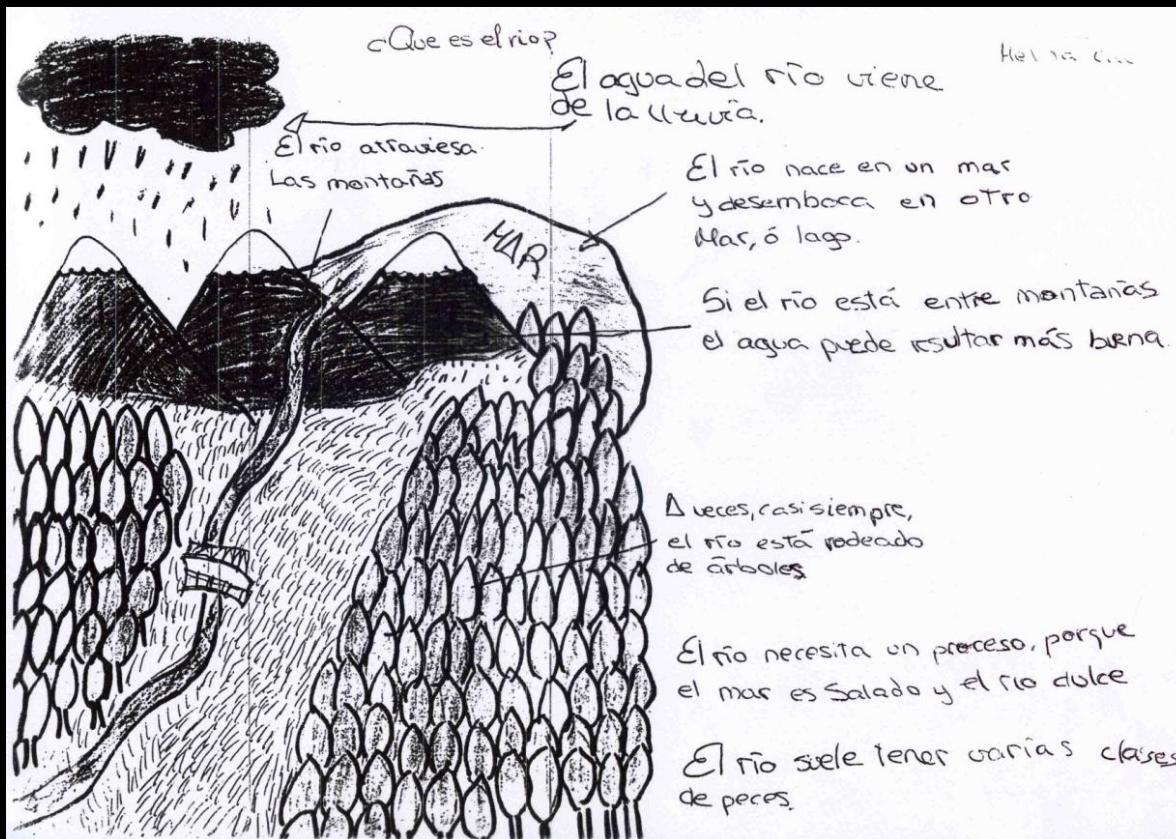 ¿Que es el río?
El agua del río viene
de la lluvia.
El río atraviesa
Las montañas
MAR
El río nace en un mar
y desemboca en otro
Mar, ó lago.
Si el río está entre montañas
el agua puede resultar más buena.
A veces, casi siempre,
el río está rodeado
de árboles
El río necesita un proceso, porque
el mar es Salado y el río dulce
El río suele tener varias clases
de peces.